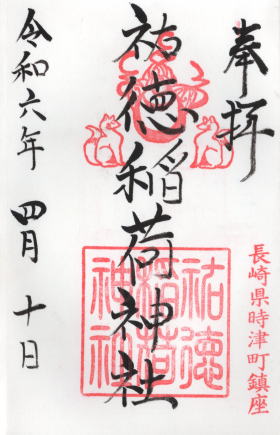 奉拝
長崎県時津町鎮座
祐徳稲荷神社
祐徳
稲荷
神社
令和六年 四月 十日